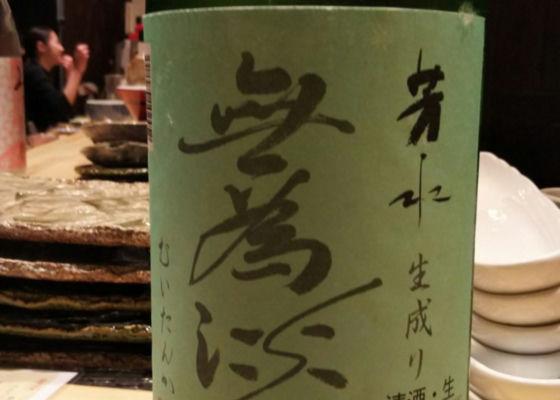 芳水
生成り
無為淡
むいたんか
清酒・生